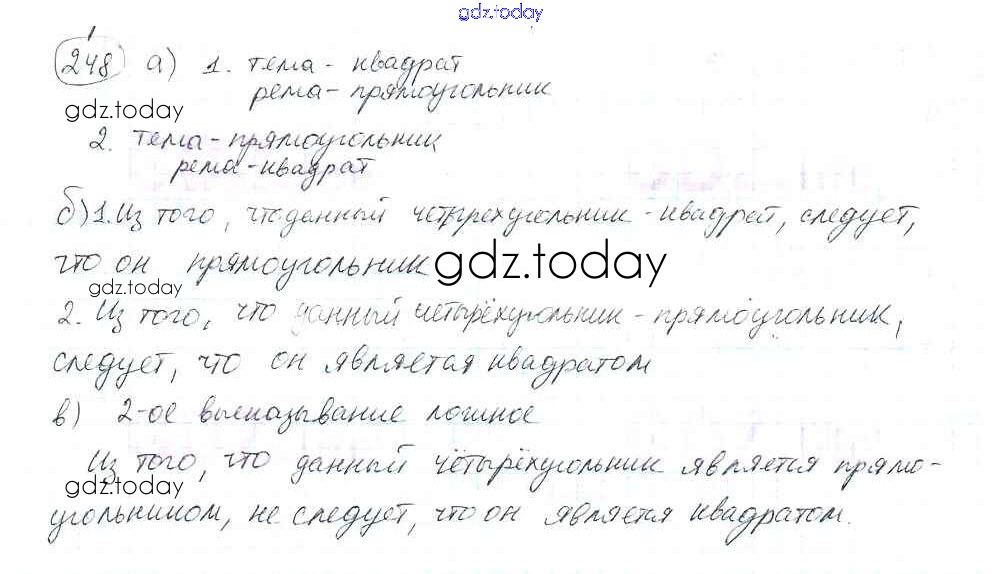 gdz.today
248 а) 1. тема - квадрат
рема - прямоугольник
gdz.today
2. тема - прямоугольник
рема - квадрат
б) 1. Из того, что данный четырехугольник - квадрат, следует,
что он прямоугольник gdz.today
gdz.today
2. Из того, что данный четырёхугольник - прямоугольник,
следует, что он является квадратом
в) 2-ое высказывание ложное
Из того, что данный чётырёхугольник является прямо-
gdz.today
угольником, не следует, что он является квадратом.